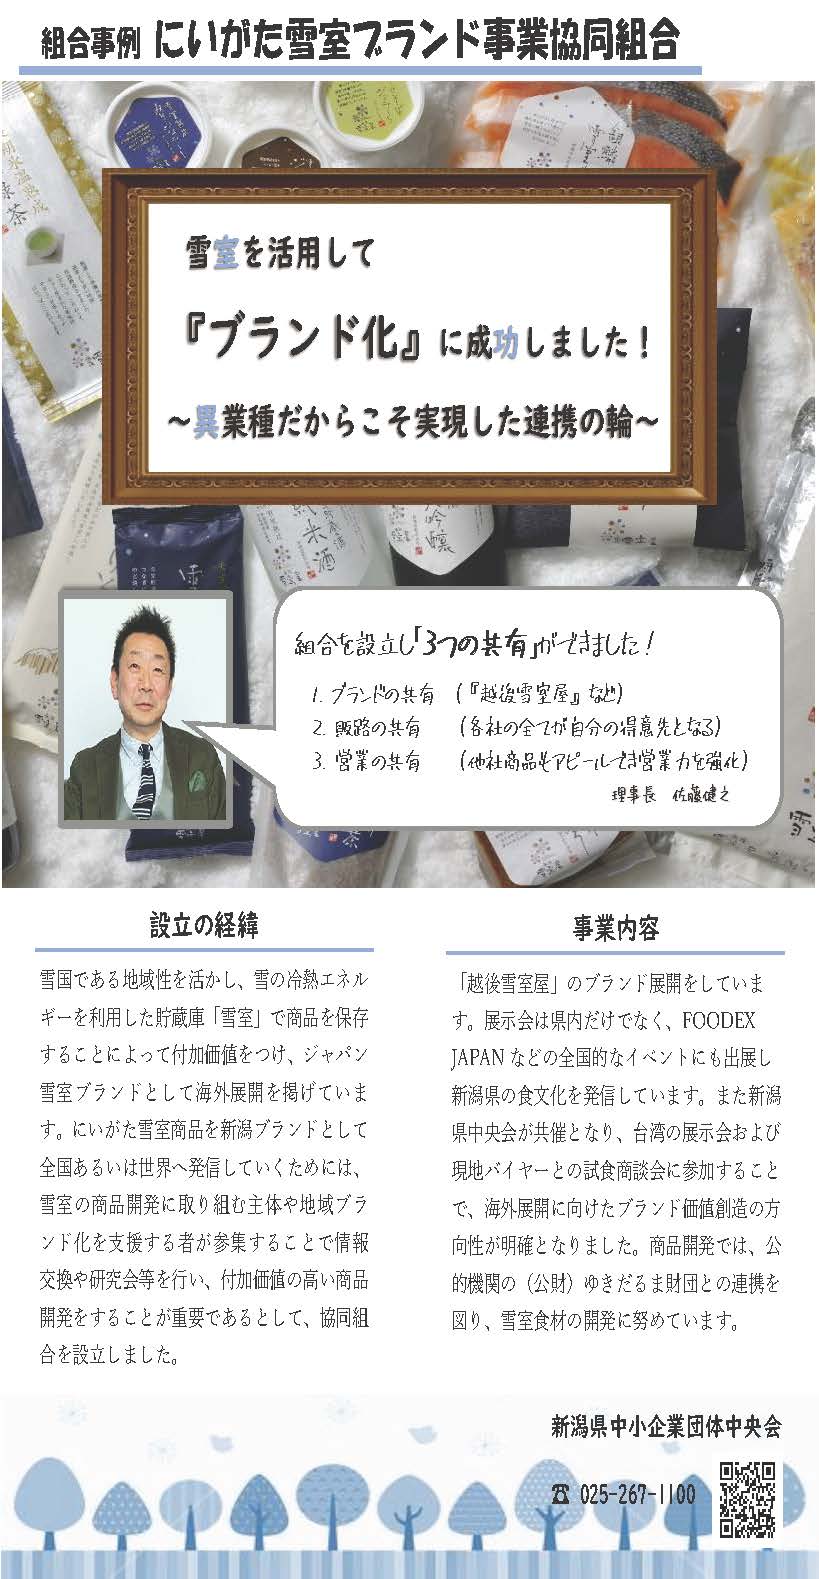 組合事例 にいがた雪室ブランド事業協同組合
雪室を活用して
『ブランド化』に成功しました！
～異業種だからこそ実現した連携の輪～
純米酒
吟醸
組合を設立し「3つの共有」ができました！
1. ブランドの共有 （『越後雪室屋』など）
2. 販路の共有 （各社の全てが自分の得意先となる）
3. 営業の共有 （他社商品もアピールでき営業力を強化）
理事長 佐藤健之
設立の経緯
雪国である地域性を活かし、雪の冷熱エネル
ギーを利用した貯蔵庫「雪室」で商品を保存
することによって付加価値をつけ、ジャパン
雪室ブランドとして海外展開を掲げていま
す。にいがた雪室商品を新潟ブランドとして
全国あるいは世界へ発信していくためには、
雪室の商品開発に取り組む主体や地域ブラ
ンド化を支援する者が参集することで情報
交換や研究会等を行い、付加価値の高い商品
開発をすることが重要であるとして、協同組
合を設立しました。
事業内容
「越後雪室屋」のブランド展開をしていま
す。展示会は県内だけでなく、FOODEX
JAPAN などの全国的なイベントにも出展し
新潟県の食文化を発信しています。また新潟
県中央会が共催となり、台湾の展示会および
現地バイヤーとの試食商談会に参加すること
で、海外展開に向けたブランド価値創造の方
向性が明確となりました。商品開発では、公
的機関の（公財）ゆきだるま財団との連携を
図り、雪室食材の開発に努めています。
新潟県中小企業団体中央会
☎ 025-267-1100